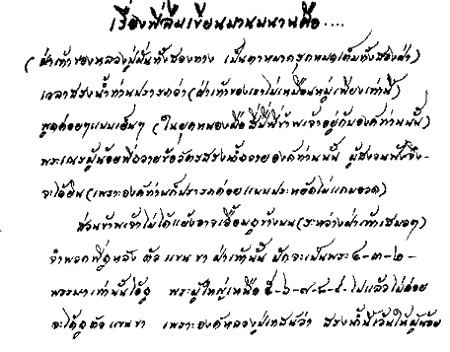 เรื่องที่ลืมเขียนมานมนานคือ....
(ฝ่าเท้าของหลวงปู่มั่นทั้งสองทาง เป็นตาหมากรุกหมดเต็มทั้งสองฝ่า)
เวลาสรงน้ำท่านปรารภว่า (ฝ่าเท้าของเราไม่เหมือนหมู่เพียงเท่านี้)
พูดค่อยๆแบบเย็นๆ (ในยุคหนองผือ ที่ข้าพเจ้าอยู่กับองค์ท่านนั้น)
พระเณรผู้น้อยที่ถวายข้อวัตรสรงน้ำถวายองค์ท่านนั้น ผู้สงวนฟังจึง-
จะได้ยิน (เพราะองค์ท่านก็ปรารภค่อยแบบประหยัดไม่แกมอวด)
ส่วนข้าพเจ้าไม่ได้แย้งอาจเอื้อมดูข้างบน (ระหว่างฝ่าเท้าเสมอๆ)
จำพวกที่ถูหลัง ตัว แขน ขา ฝ่าเท้านั้น มักจะเป็นพระ ๔-๓-๒-
พรรษาเท่านั้นได้ถู พระผู้ใหญ่เหนือ ๕-๖-๗-๘-๙-ไปแล้วไม่ค่อย
จะได้ถูตัวแขนขา เพราะองค์หลวงปู่เทศน์ว่า สรงน้ำนี้เว้นให้ผู้น้อย